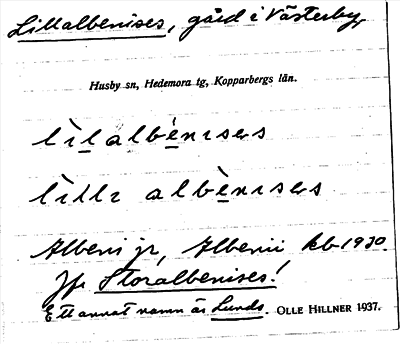 Lillalbenises, gård i Västerby,
Husby sn, Hedemora tg, Kopparbergs län.
lìlalbènisərs
lìlli albènisərs
Albens jr, Albenii kb 1930.
Jfr Storalbenises!
Ett annat namn är Lunds. OLLE HILLNER 1937.